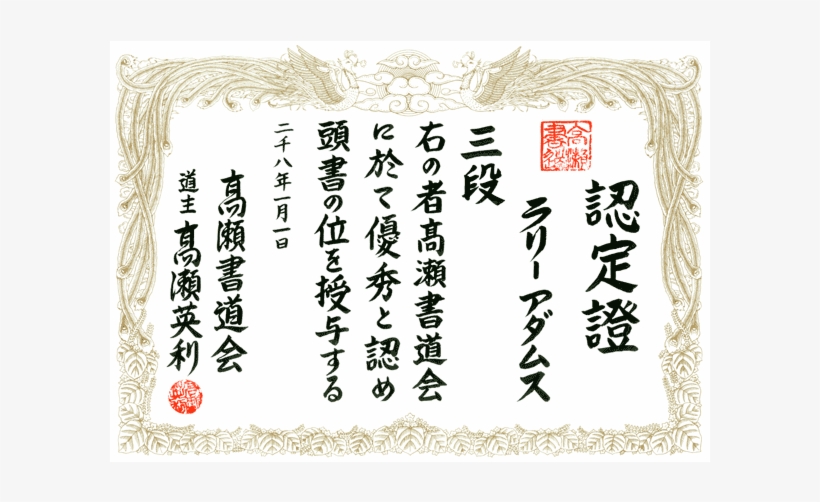 認定證
ラリーアダムス
三段
右の者髙瀬書道会
に於て優秀と認め
頭書の位を授与する
二千八年一月一日
髙瀬書道会
道主 髙瀬英利